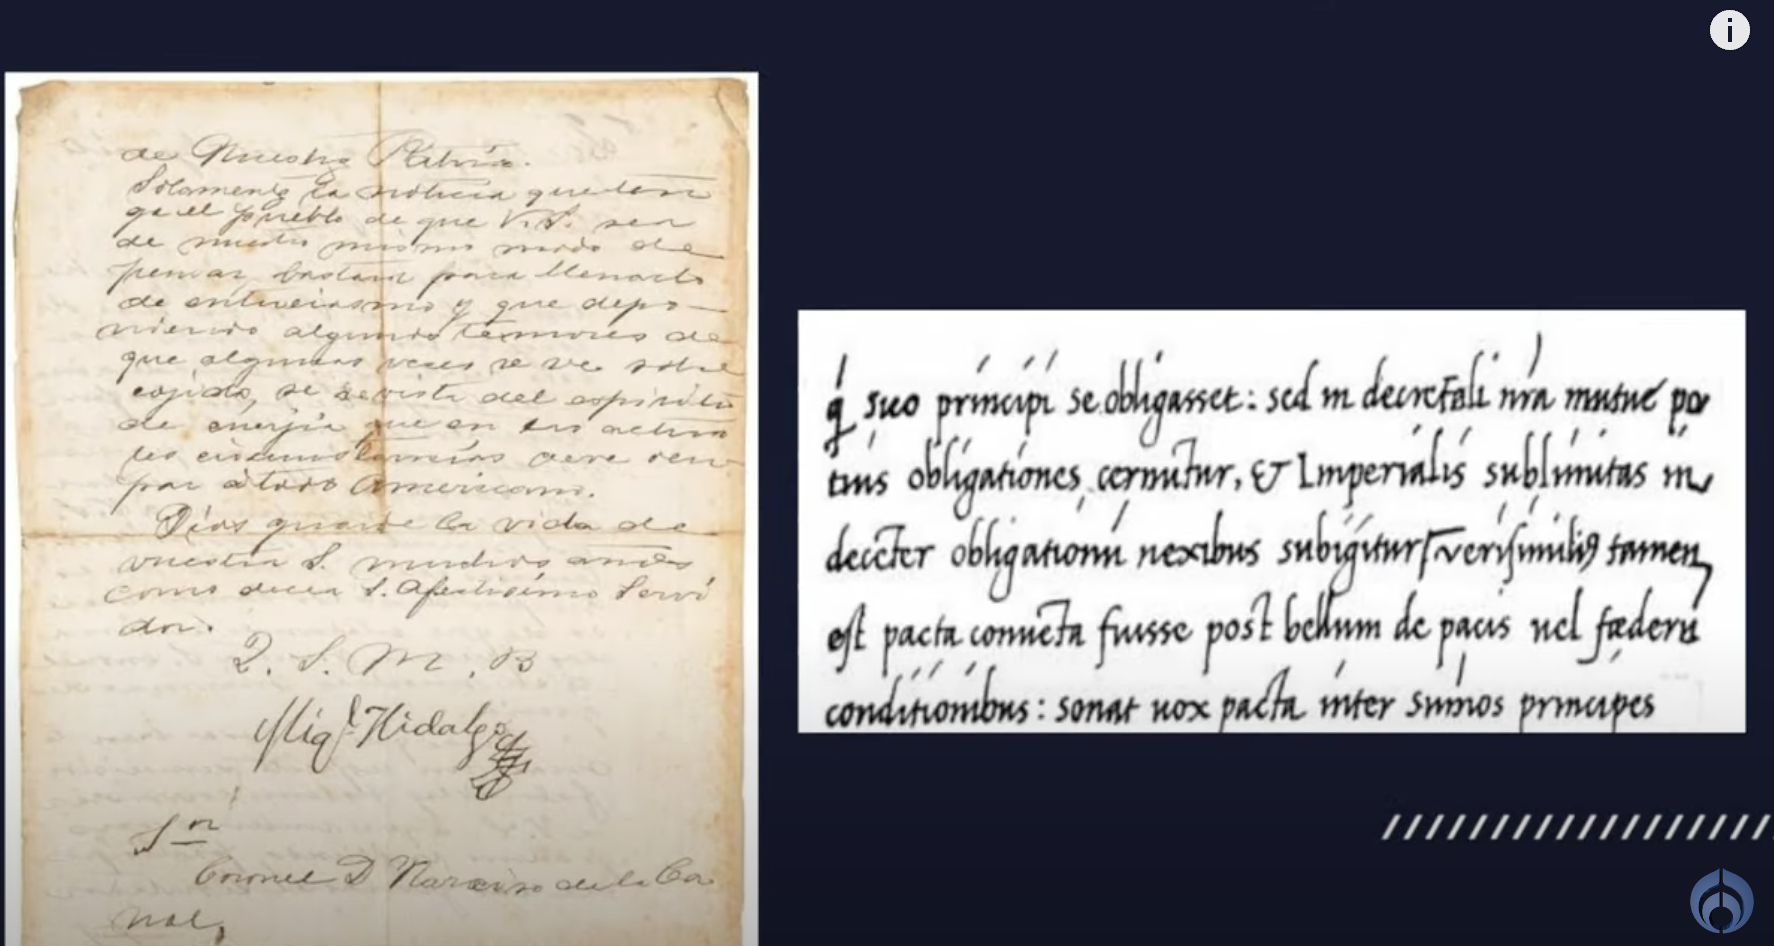 de Nuestra Patria.
Solamente la noticia que ten
ga el pueblo de que V.S. sea
de nuestro mismo modo de
pensar, bastara para llenarlo
de entuciasmo y que depo-
niendo algunos temores de
que algunas veces se ve sobre
cojido, se revista del espiritu
de energia que en las actua
les circunstansias deve reu
par a todo Americano.
Dios guarde la vida de
vuestra S. muchos años
como decea S. Afectisimo Servi
dor.
Q. S. M. B
Migl. Hidalgo
Sor
Coronel D Narciso de la Ca
nal,
q suo principi se obligasset: sed in decretali nra mutue po
tius obligationes cernutur, & Imperialis sublimitas in
deceter obligationu nexibus subigitur, verisimiliꝰ tamen
est pacta conueta fuisse post bellum de pacis uel fœderu
conditionibus: sonat uox pacta inter sumos principes